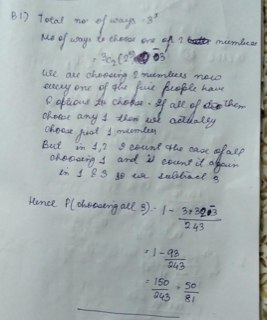 B1) Total no of ways - 3⁵
No of ways to choose one of 2 numbers
= ³C₂(2⁵) - 3
We are choosing 2 numbers now
every one of the five people have
2 options to choose. If all of them
choose any 1 then we actually
choose just 1 number
But in 1,2 I count the case of all
choosing 1 and I count it again
in 1 & 3 so we subtract 3
Hence P(choosing all 3) = 1 - 3×32-3
243
= 1 - 93
243
= 150 = 50
243 81